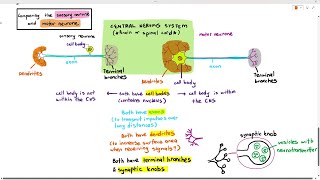 Comparing the sensory neurone
and motor neurone.
CENTRAL NERVOUS SYSTEM
(brain or spinal cord)
sensory neurone
motor neurone
cell body
axon
axon
dendrites
Terminal
branches
Dendrites
cell body
Terminal
branches
cell body is not
within the CNS
both have cell bodies
(contains nucleus)
cell body is within
the CNS
Both have axons
(to transmit impulses over
long distances)
Both have dendrites
(to increase surface area
when receiving signals)
Both have terminal branches
& synaptic knobs
synaptic knob
vesicles with
neurotransmitter